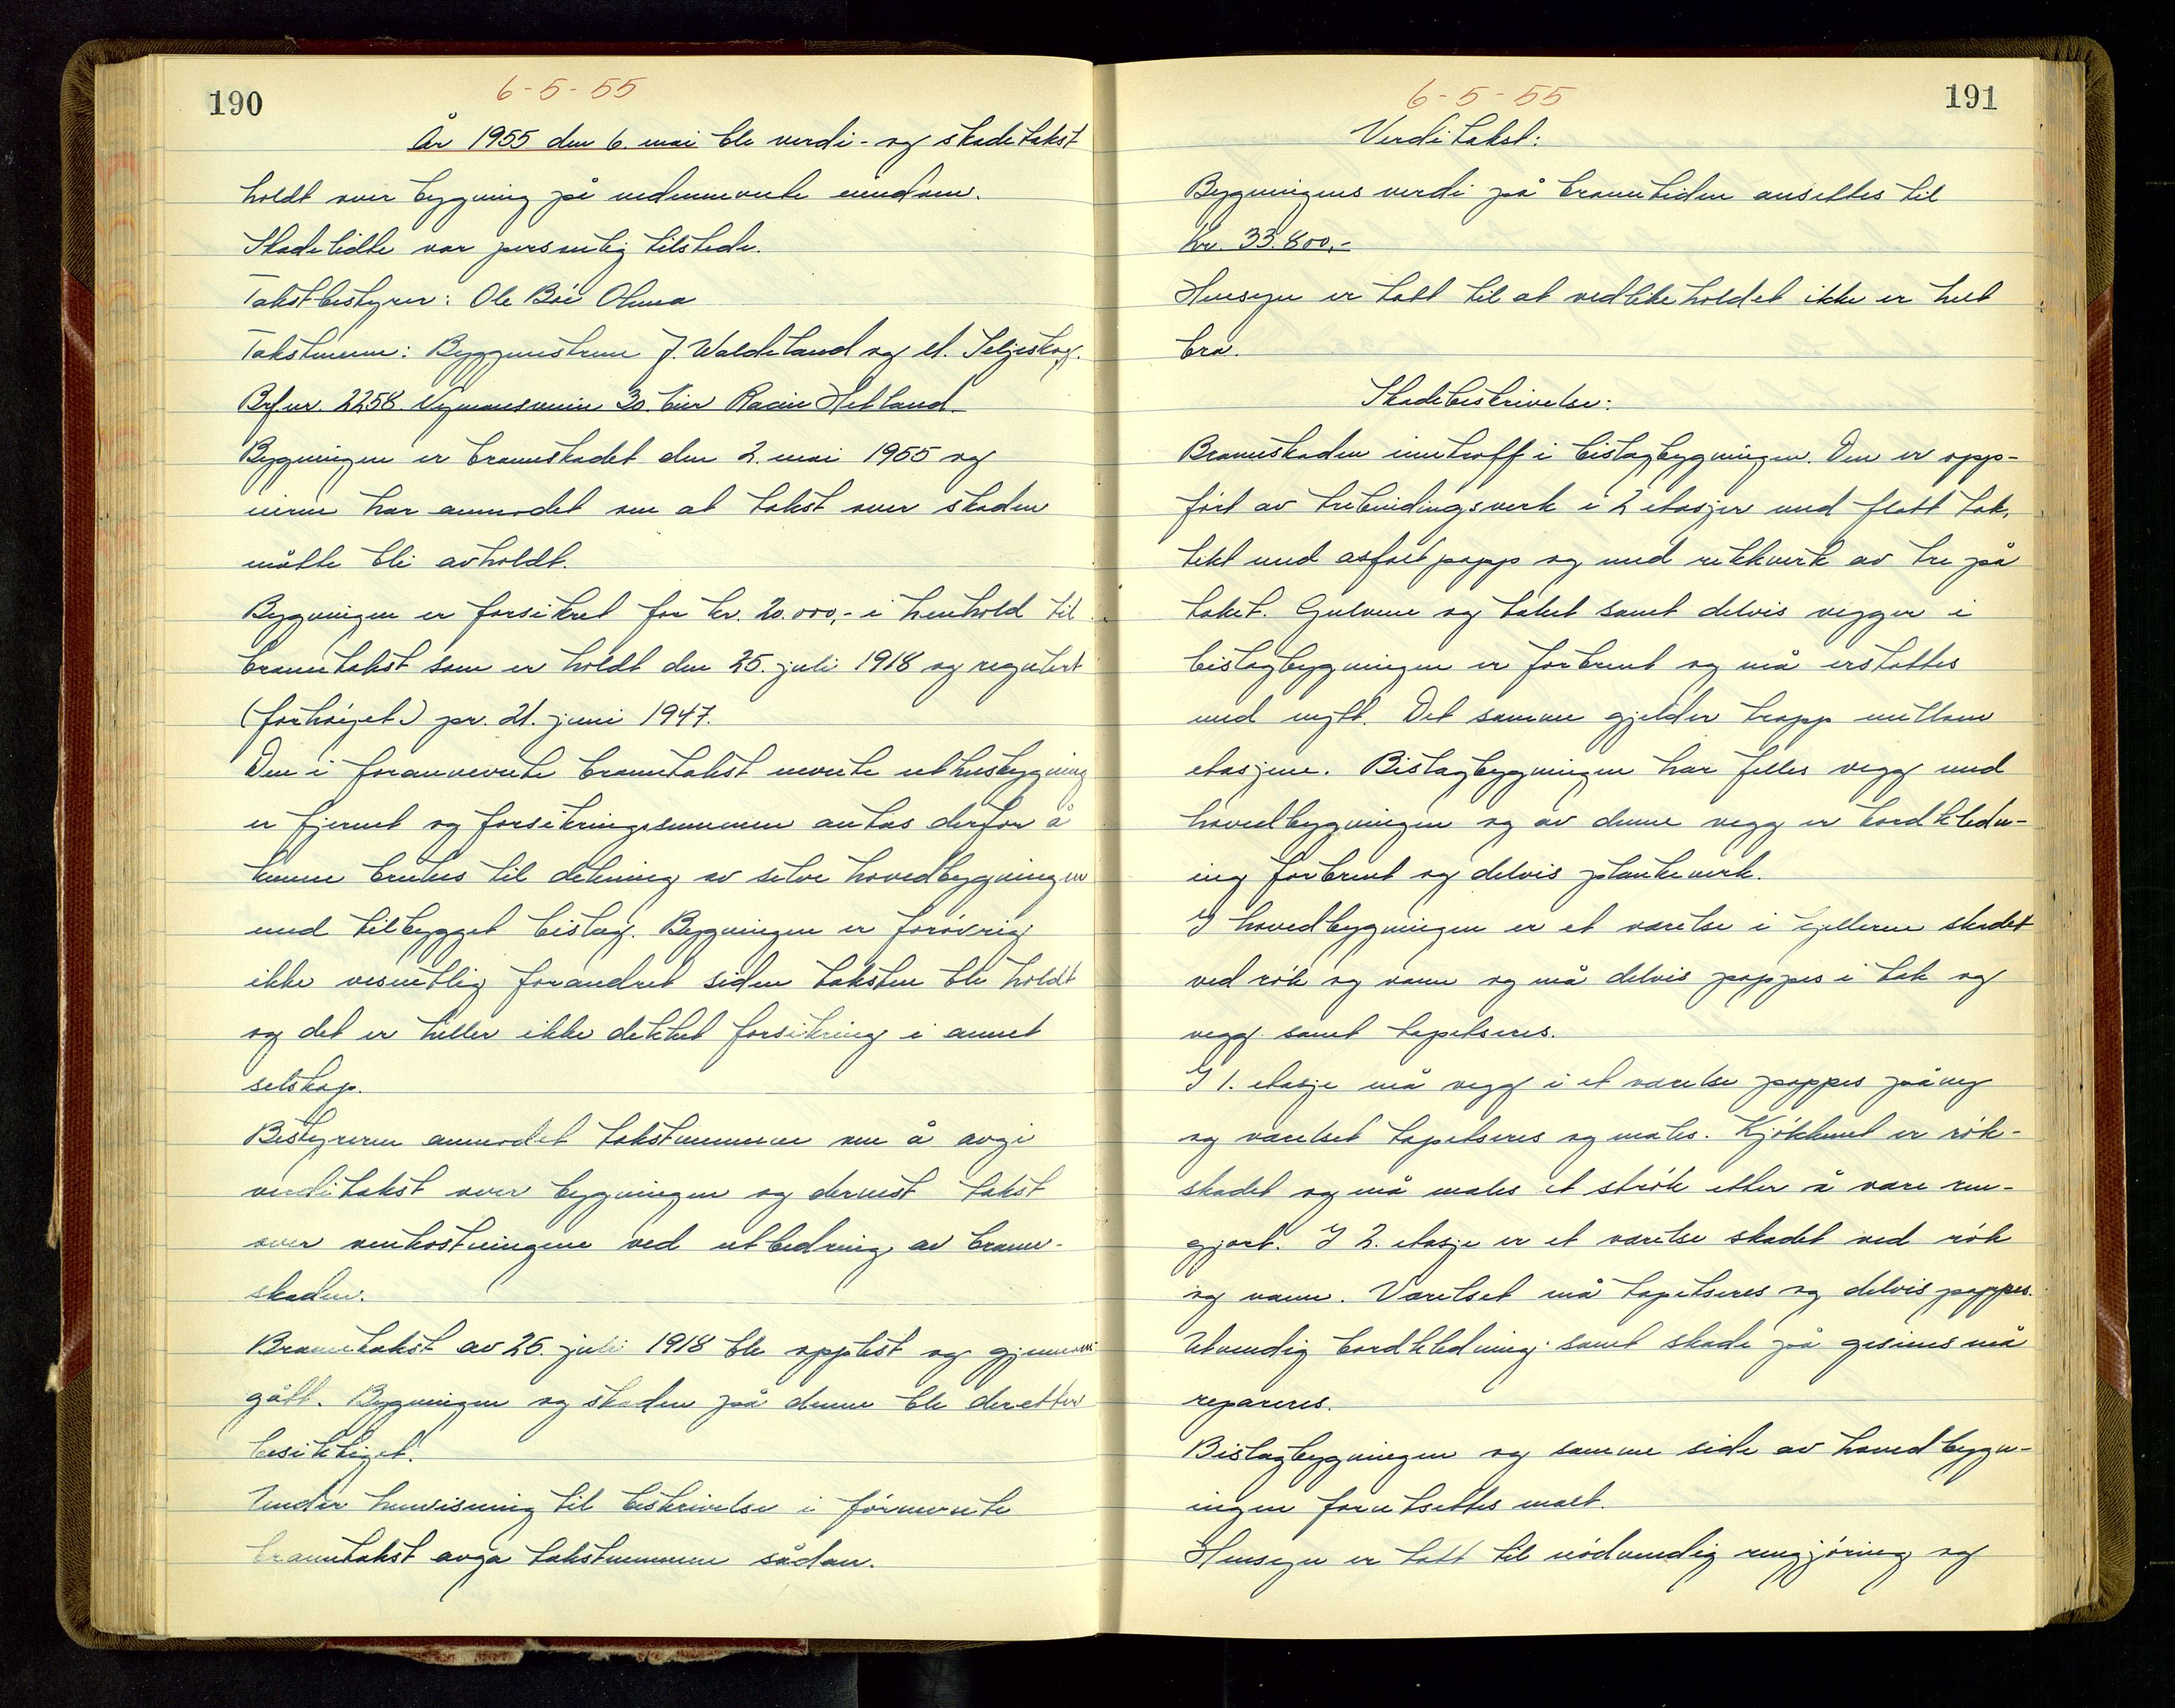 190
6-5-55
År 1955 den 6. mai ble verdi- og skadetakst
holdt over bygning på nedennevnte eiendom.
Skadelidte var personlig tilstede.
Takstbestyrer: Ole Bøe Olsma
Takstmenn: Byggmestrene J. Waldeland og M. Seljeskog.
Brf nr. 2258. Nymansveien 30. Eier Racin Hetland
Bygningen er brannskadet den 2. mai 1955 og
eieren har anmodet om at takst over skaden
måtte bli avholdt.
Bygningen er forsikret for kr. 20.000,- i henhold til
branntakst som er holdt den 25. juli 1918 og regulert
(forhøiet) pr. 21. juni 1947.
Den i forannevnte branntakst nevnte uthusbygning
er fjernet og forsikringssummen antas derfor å
kunne brukes til dekning av selve hovedbygningen
med tilbygget bislag. Bygningen er forøvrig
ikke vesentlig forandret siden taksten ble holdt
og det er heller ikke dekket forsikring i annet
selskap.
Bestyreren anmodet takstmennene om å avgi
verditakst over bygningen og dernest takst
over omkostningene ved utbedring av brann-
skaden.
Branntakst av 25. juli 1918 ble opplest og gjennom-
gått. Bygningen og skaden på denne ble deretter
besiktiget.
Under henvisning til beskrivelse i førnevnte
branntakst avga takstmennene sådan.
191
6-5-55
Verditakst:
Bygningens verdi på branntiden ansettes til
kr. 33.800,-
Hensyn er tatt til at vedlikeholdet ikke er helt
bra.
Skadebeskrivelse:
Brannskaden inntraff i bislagbygningen. Den er opp-
ført av trebindingsverk i 2 etasjer med flatt tak,
tekt med asfaltpapp og med rekkverk av tre på
taket. Gulvene og taket samt delvis vegger i
bislagbygningen er forbrent og må erstattes
med nytt. Det samme gjelder trapp mellom
etasjene. Bislagbygningen har felles vegg med
hovedbygningen og av denne vegg er bordkledn-
ing forbrent og delvis plankeverk.
I hovedbygningen er et værelse i kjelleren skadet
ved røk og vann og må delvis pappes i tak og
vegg samt tapetseres.
I 1. etasje må vegg i et værelse pappes påny
og værelset tapetseres og males. Kjøkkenet er røk-
skadet og må males et strøk etter å være ren-
gjort. I 2. etasje er et værelse skadet ved røk
og vann. Værelset må tapetseres og delvis pappes.
Utvendig bordkledning samt skade på gesims må
repareres.
Bislagbygningen og samme side av hovedbygn-
ingen forutsettes malt.
Hensyn er tatt til nødvendig rengjøring og